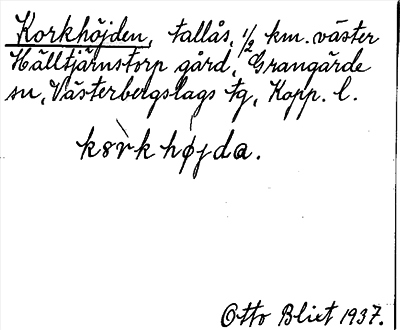 Korkhöjden, tallås, 1/2 km. väster
Hälltjärnstorp gård, Grangärde
sn, Västerbergslags tg, Kopp. l.
kɔrkhøjda.
Otto Blixt 1937.